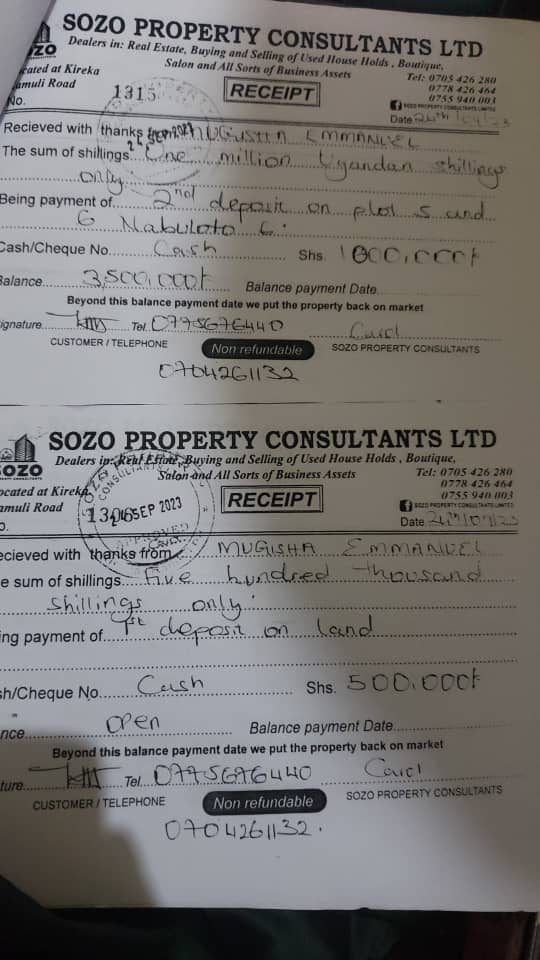 SOZO PROPERTY CONSULTANTS LTD
Dealers in: Real Estate, Buying and Selling of Used House Holds , Boutique,
Salon and All Sorts of Business Assets
ZO
cated at Kireka
amuli Road
Tel: 0705 426 280
0778 426 464
0755 940 003
SOZO PROPERTY CONSULTANTS LIMITED
No. 1315
RECEIPT
Date 26th
Recieved with thanks from MUGISHA EMMANUEL
The sum of shillings One million Ugandan shillings
only
Being payment of 2nd deposit on plot 5 and
6 Nabuloto 6.
Cash/Cheque No. Cash Shs. 1000,000/=
Balance 3,500,000/= Balance payment Date
Beyond this balance payment date we put the property back on market
ignature Tel. 0775676440 Carol
CUSTOMER / TELEPHONE Non refundable SOZO PROPERTY CONSULTANTS
0704261132
SOZO PROPERTY CONSULTANTS LTD
Dealers in: Real Estate, Buying and Selling of Used House Holds , Boutique,
Salon and All Sorts of Business Assets
OZO
ocated at Kireka
amuli Road
Tel: 0705 426 280
0778 426 464
0755 940 003
SOZO PROPERTY CONSULTANTS LIMITED
o. 1306
SEP 2023
APPROVED
RECEIPT
Date
ecieved with thanks from MUGISHA EMMANUEL
e sum of shillings five hundred thousand
shillings only
ing payment of 1st deposit on land
sh/Cheque No. Cash Shs. 500,000/=
nce open Balance payment Date
Beyond this balance payment date we put the property back on market
ture Tel. 0775676440 Carol
CUSTOMER / TELEPHONE Non refundable SOZO PROPERTY CONSULTANTS
0704261132.